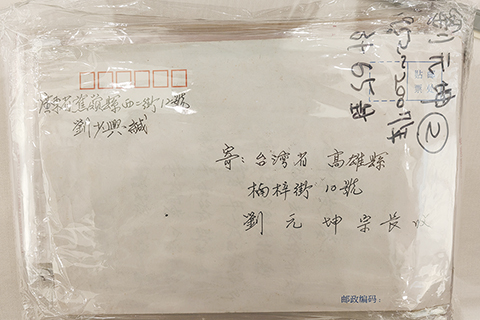 劉元坤②
計65封
廣東省蕉嶺縣西二街12號
劉少興緘
寄:台湾省 高雄縣
楠梓街 10號
劉元坤宗長收
邮政编码: